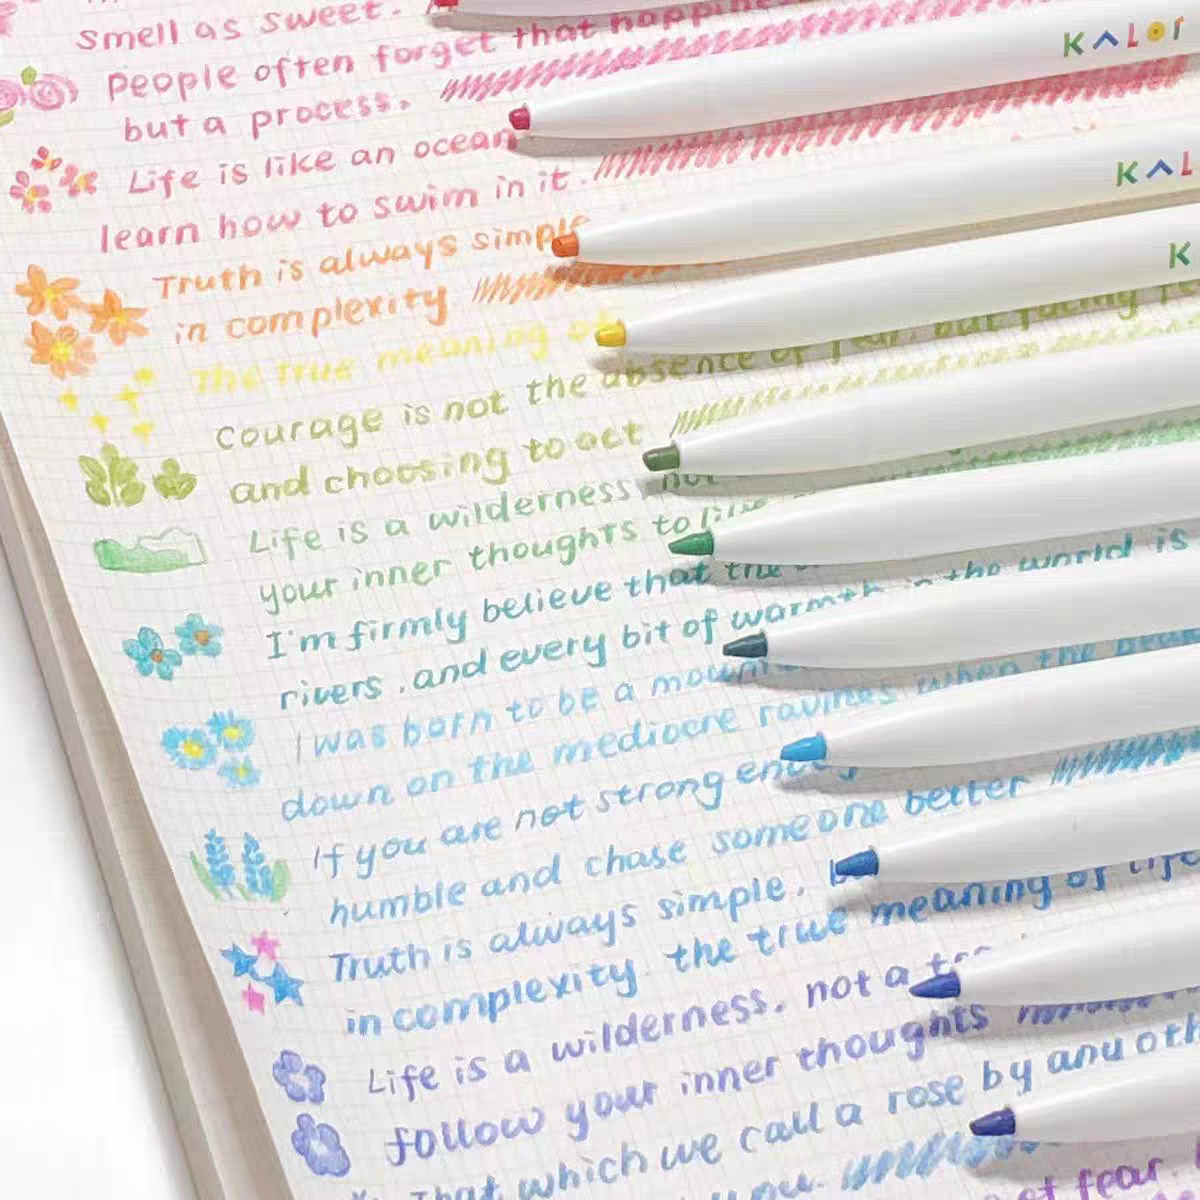 smell as sweet.
People often forget that happiness
but a process.
KALOr
Life is like an ocean
learn how to swim in it.
KAL
Truth is always simple
in complexity
K
The true meaning of
Courage is not the absence of fear, but facing
and choosing to act
Life is a wilderness, not
your inner thoughts to
I'm firmly believe that the
rivers, and every bit of warmth in the world is
I was born to be a mountain
down on the mediocre ravines when the
If you are not strong enough
humble and chase someone better
Truth is always simple,
in complexity. the true meaning of life
Life is a wilderness, not a
follow your inner thoughts
That which we call a rose by any oth
you.
of fear.